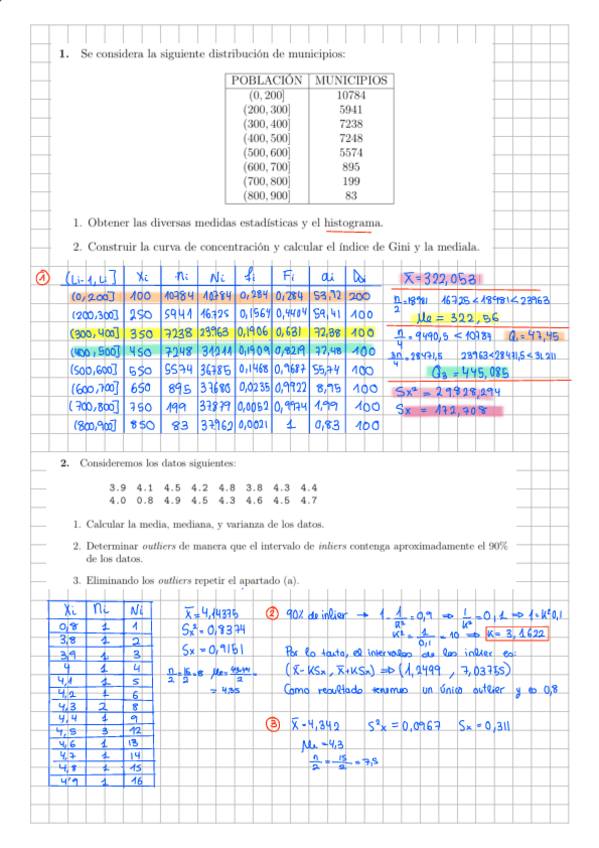 1. Se considera la siguiente distribución de municipios:
POBLACIÓN MUNICIPIOS
(0, 200] 10784
(200, 300] 5941
(300, 400] 7238
(400, 500] 7248
(500, 600] 5574
(600, 700] 895
(700, 800] 199
(800, 900] 83
1. Obtener las diversas medidas estadísticas y el histograma.
2. Construir la curva de concentración y calcular el índice de Gini y la mediala.
① (Li-1, Li] Xi ni Ni fi Fi ai
(0,200] 100 10784 10784 0,284 0,284 53,92 200
(200,300] 250 5941 16725 0,1564 0,4404 59,41 100
(300,400] 350 7238 23963 0,1906 0,631 72,38 100
(400,500] 450 7248 31211 0,1909 0,8219 72,48 100
(500,600] 550 5574 36785 0,1468 0,9687 55,74 100
(600,700] 650 895 37680 0,0235 0,9922 8,95 100
(700,800] 750 199 37879 0,0052 0,9974 1,99 100
(800,900] 850 83 37962 0,0021 1 0,83 100
X̄ = 322,053
n/2 = 18981 16725 < 18981 < 23963
Me = 322,56
n/4 = 9490,5 < 10784 Q₁ = 47,45
3n/4 = 28471,5 23963 < 28471,5 < 31211
Q₃ = 445,085
Sx² = 29828,294
Sx = 172,708
2. Consideremos los datos siguientes:
3.9 4.1 4.5 4.2 4.8 3.8 4.3 4.4
4.0 0.8 4.9 4.5 4.3 4.6 4.5 4.7
1. Calcular la media, mediana, y varianza de los datos.
2. Determinar outliers de manera que el intervalo de inliers contenga aproximadamente el 90%
de los datos.
3. Eliminando los outliers repetir el apartado (a).
Xi ni Ni
0,8 1 1
3,8 1 2
3,9 1 3
4 1 4
4,1 1 5
4,2 1 6
4,3 2 8
4,4 1 9
4,5 3 12
4,6 1 13
4,7 1 14
4,8 1 15
4'9 1 16
X̄ = 4,14375
Sx² = 0,8374
Sx = 0,9151
n/2 = 16/2 = 8
= 4,35
② 90% de inlier → 1 - 1/K² = 0,9 ⇒ 1/K² = 0,1 ⇒ 1 = K² 0,1
K² = 1/0,1 = 10 ⇒ K = 3,1622
Por lo tanto, el intervalo de los inlier es:
(X̄ - KSx, X̄ + KSx) ⇒ (1,2499, 7,03755)
Como resultado tenemos un único outlier y es 0,8
③ X̄ = 4,342 S²x = 0,0967 Sx = 0,311
Me = 4,3
n/2 = 15/2 = 7,5